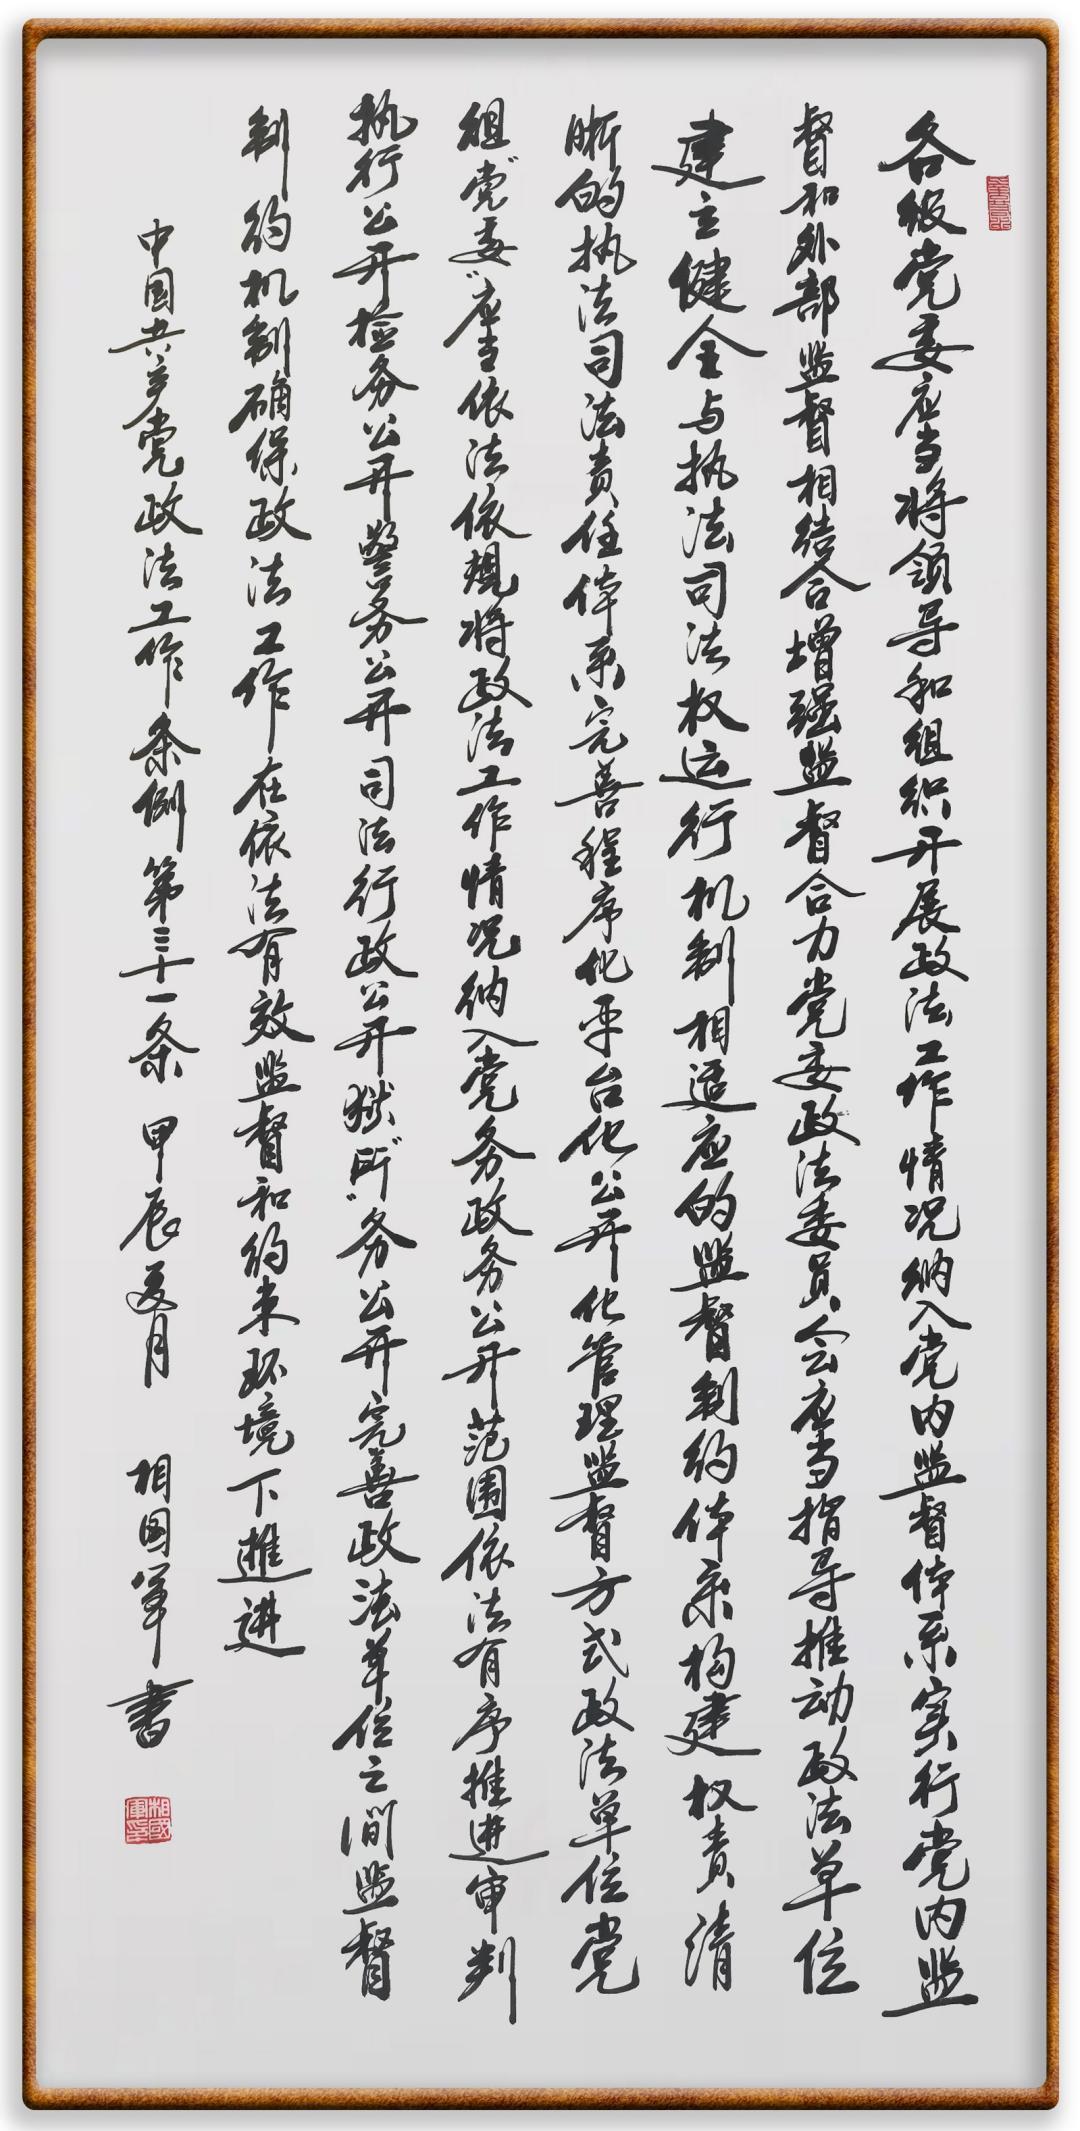 各级党委应当将领导和组织开展政法工作情况纳入党内监督体系实行党内监
督和外部监督相结合增强监督合力党委政法委员会应当指导推动政法单位
建立健全与执法司法权运行机制相适应的监督制约体系构建权责清
晰的执法司法责任体系完善程序化平台化公开化管理监督方式政法单位党
组“党委”应当依法依规将政法工作情况纳入党务政务公开范围依法有序推进审判
执行公开检务公开警务公开司法行政公开狱“所”务公开完善政法单位之间监督
制约机制确保政法工作在依法有效监督和约束环境下推进
中国共产党政法工作条例第三十一条 甲辰夏月 相国军书
相國軍印